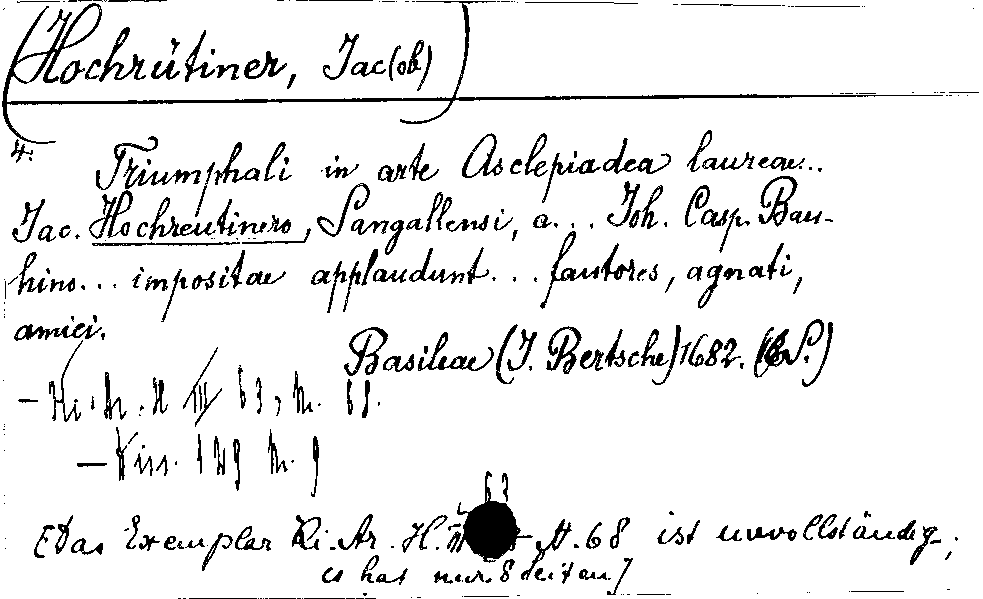 (Hochrütiner, Jac(ob)
4. Triumphali in arte Asclepiadea laureae...
Jac. Hochreutinero, Sangallensi, a... Joh. Casp. Bau-
hino... impositae applaudunt... fautores, agnati,
amici.
Basileae (J. Bertsche) 1682. (6 S.)
- Ki. Ar. H III 63, N. 68.
- Diss. 149 N. 9
63
[Das Exemplar Ki. Ar. H. III N. 68 ist unvollständig,
es hat nur 8 Seiten]